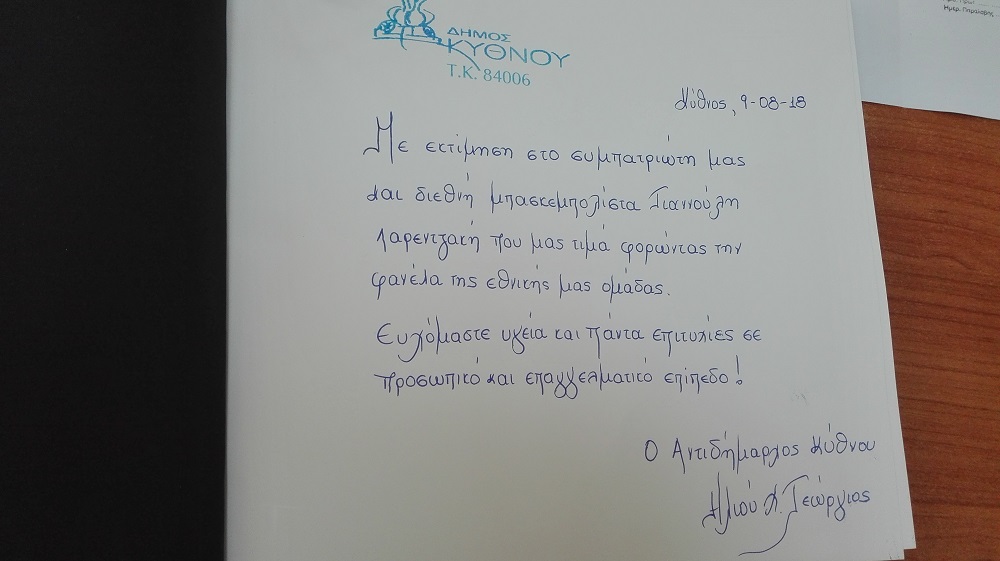 ΔΗΜΟΣ
ΚΥΘΝΟΥ
Τ.Κ. 84006
Κύθνος, 9-08-18
Με εκτίμηση στο συμπατριώτη μας
και διεθνή μπασκεμπολίστα Γιαννούλη
Λαρεντζάκη που μας τιμά φορώντας την
φανέλα της εθνικής μας ομάδας.
Ευχόμαστε υγεία και πάντα επιτυχίες σε
προσωπικό και επαγγελματικό επίπεδο!
Ο Αντιδήμαρχος Κύθνου
Γεώργιος